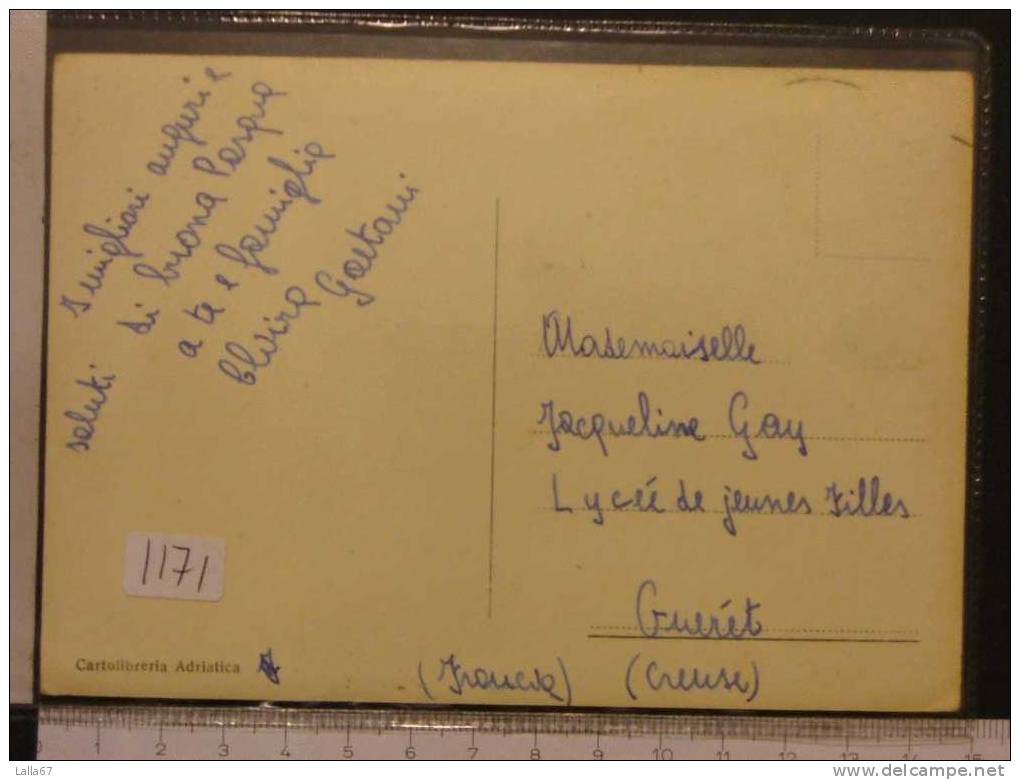 I migliori auguri e
saluti di buona Pasqua
a te e famiglia
Elvira Gaetani
Mademoiselle
Jacqueline Gay
Lyceé de jeunes filles
Guerét
(Francia) (Creuse)
1171
Cartolibreria Adriatica
0 1 2 3 4 5 6 7 8 9 10 11 12 13 14 15
Lalla67
www.delcampe.net